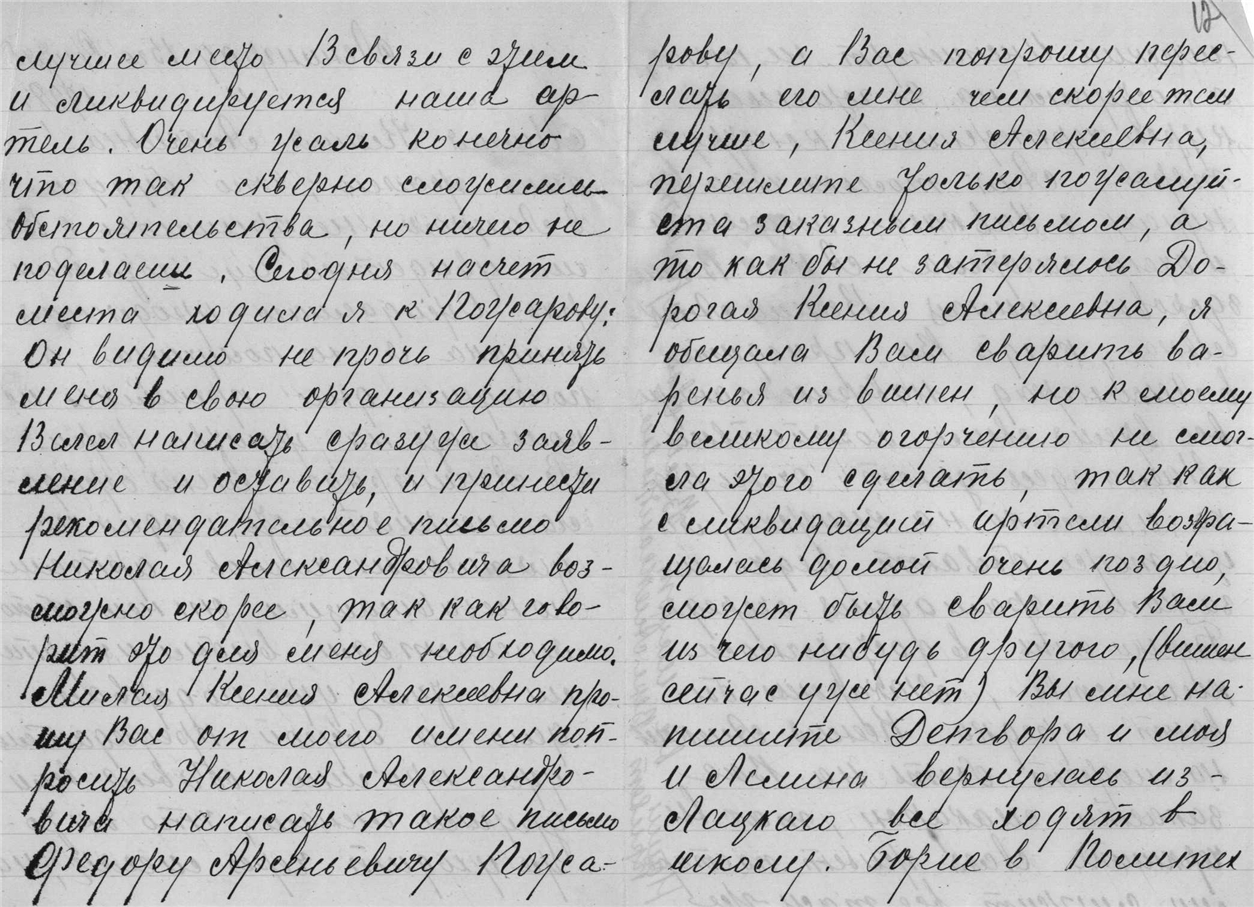 лучшее место В связи с этим
и ликвидируется наша ар-
тель. Очень жаль конечно
что так скверно сложились
обстоятельства, но ничего не
поделаеш. Сегодня насчет
места ходила я к Пожарову:
Он видимо не прочь принять
меня в свою организацию
Велел написать сразу же заяв-
ление и оставить, и принести
рекомендательное письмо
Николая Александровича воз-
можно скорее, так как гово-
рит это для меня необходимо.
Милая Ксения Алексеевна про-
шу Вас от моего имени поп-
росить Николая Александро-
вича написать такое письмо
Федору Арсеньевичу Пожа-
12
рову, а Вас попрошу перес-
лать его мне чем скорее тем
лучше, Ксения Алексеевна,
перешлите только пожалуй-
ста заказным письмом, а
то как бы не затерялось До-
рогая Ксения Алексеевна, я
обещала Вам сварить ва-
ренья из вишен, но к моему
великому огорчению не смог-
ла этого сделать, так как
с ликвидацией артели возра-
щалась домой очень поздно,
может быть сварить Вам
из чего нибудь другого, (вишен
сейчас уже нет) Вы мне на-
пишите Детвора и моя
и Лелина вернулась из-
Лацкаго все ходят в
школу. Борис в Политех